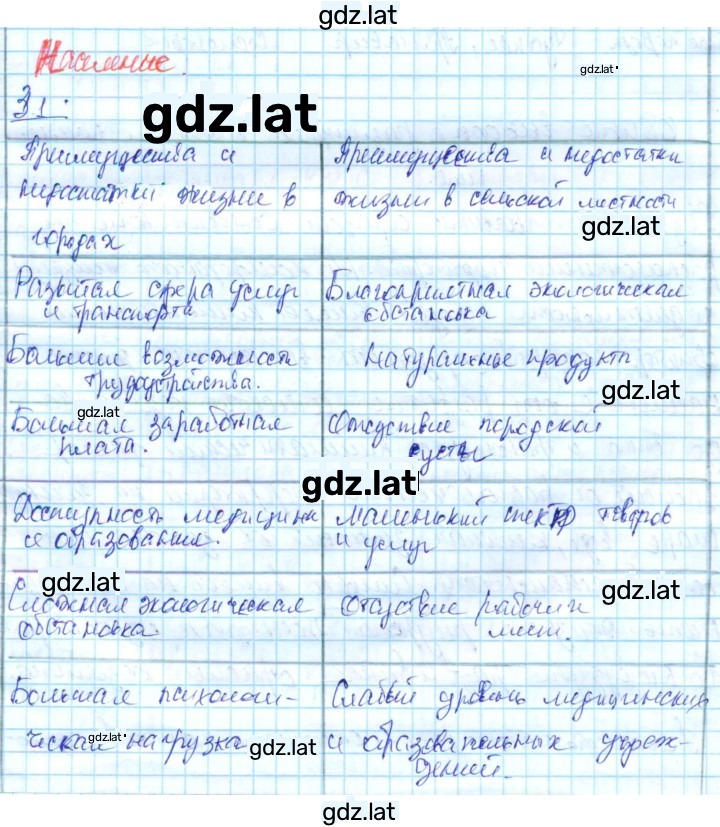 gdz.lat
Население.
gdz.lat
31.
gdz.lat
Преимущества и
недостатки жизни в
городах
Преимущества и недостатки
жизни в сельской местности
gdz.lat
Развитая сфера услуг
и транспорта
Благоприятная экологическая
обстановка
Большие возможности
трудоустройства.
Натуральные продукты
gdz.lat
gdz.lat
Большая заработная
плата.
Отсутствие городской
суеты
gdz.lat
Доступность медицины
и образования.
Маленький спектр товаров
и услуг
gdz.lat
gdz.lat
Сложная экологическая
обстановка.
Отсутствие рабочих
мест.
Большая психологи-
ческая нагрузка
gdz.lat
gdz.lat
Слабый уровень медицинских
и образовательных учреж-
дений.
gdz.lat